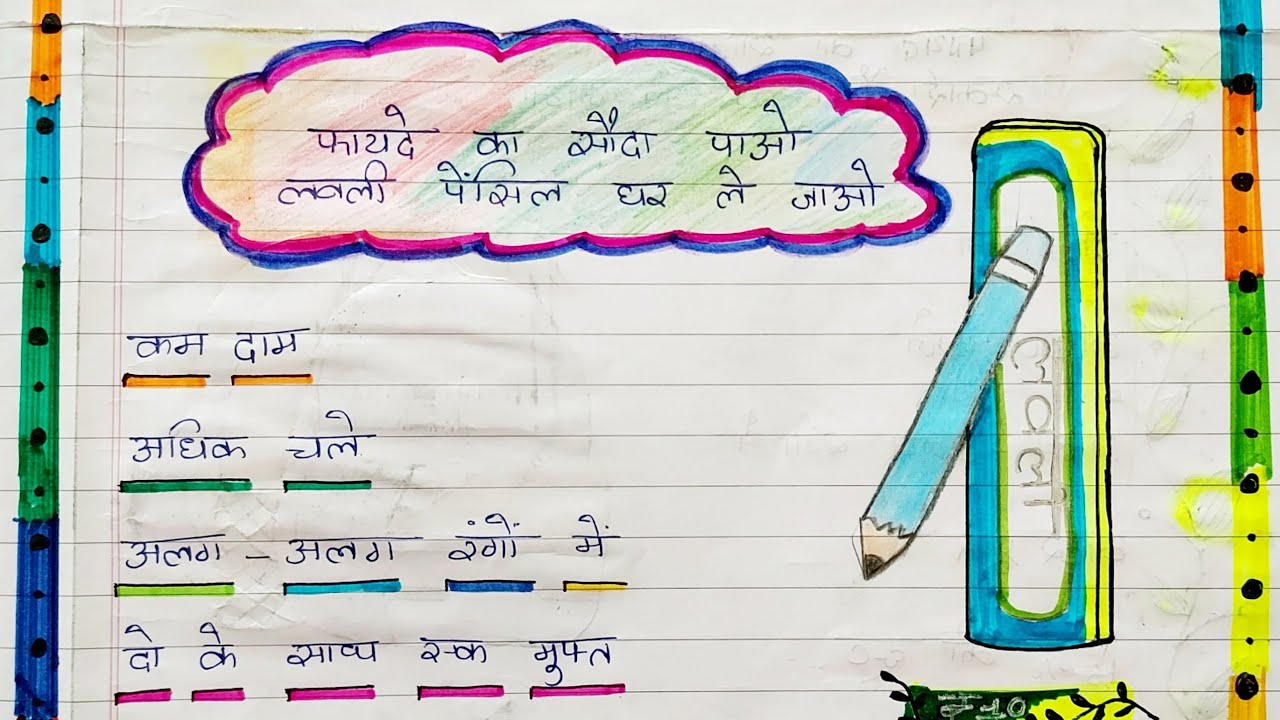 फायदे का सौदा पाओ
लवली पेंसिल घर ले जाओ
कम दाम
अधिक चले
अलग - अलग रंगों में
दो के साथ एक मुफ्त
लवली
₹10